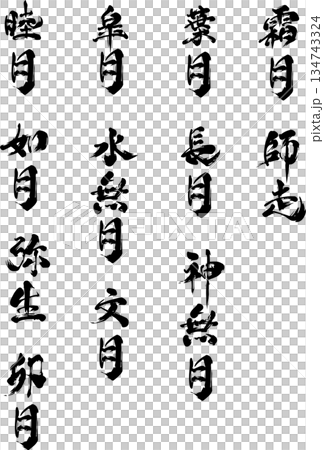 睦月
如月
弥生
卯月
皐月
水無月
文月
葉月
長月
神無月
霜月
師走
PIXTA
pixta.jp - 134743324